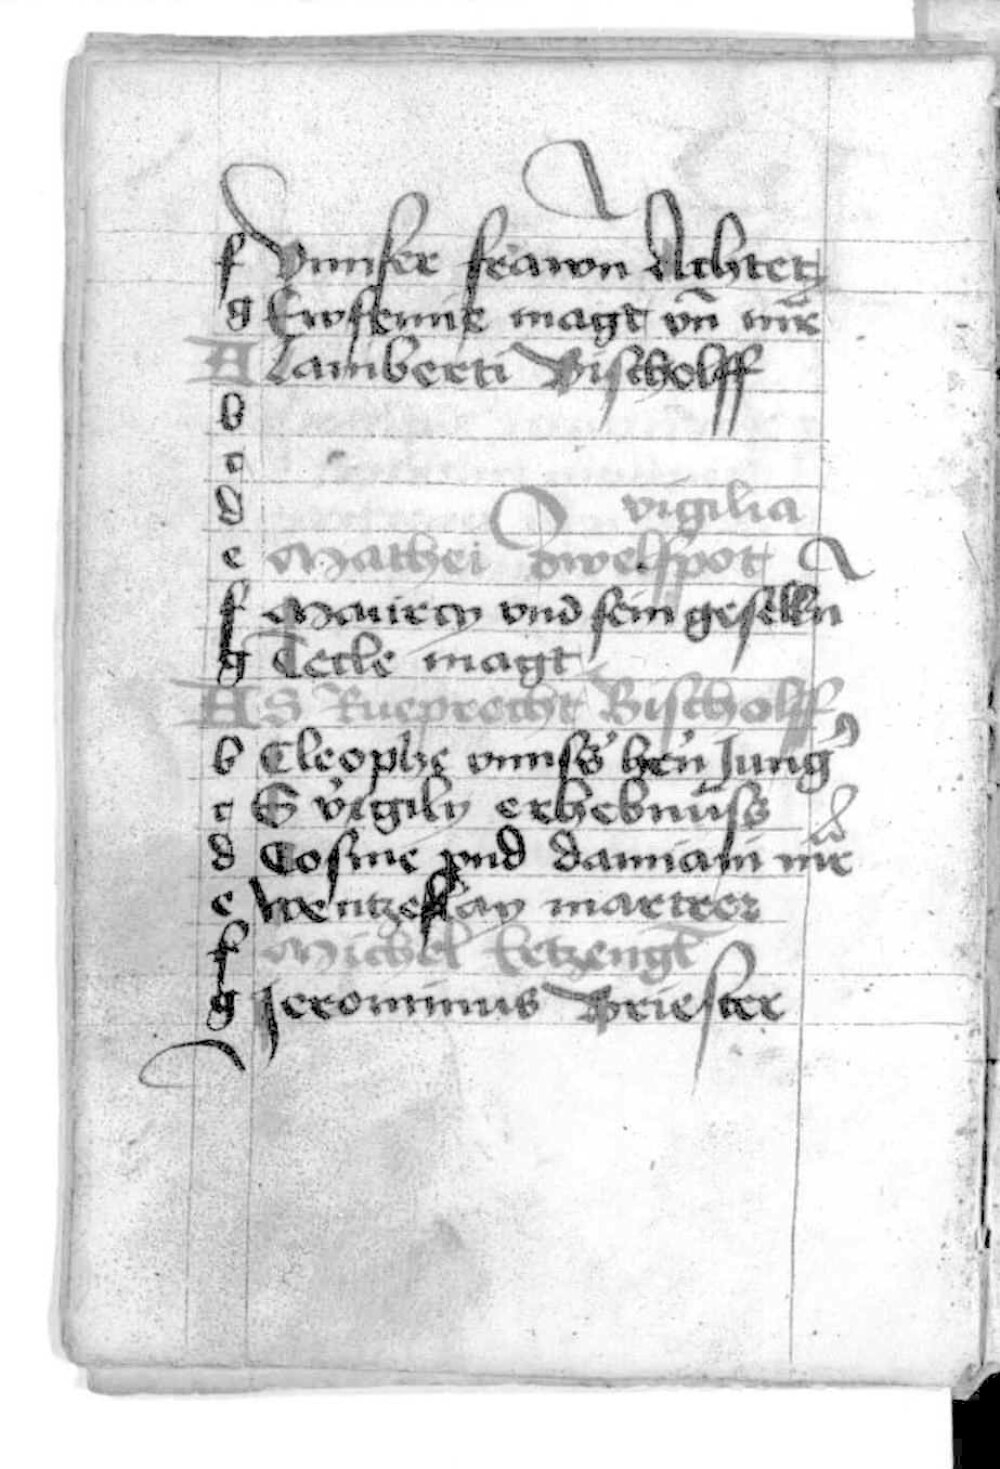 f Vnnser frawn Achtet
g Ewfemie magt vn̄ mr̄
A Lamberti Bischolff
b
c
d vigilia
e Mathei Zwelfpot
f Mauricy vnd sein geselln
g Tecle magt
A S Rueprecht Bischolff
b Cleophe vnnss hern Jung
c S virgily erhebnuss
d Cosme vnd damiani mr̄
e Wentzeslay martrer
f Michel Ertzengl
g Jeronimus Briester